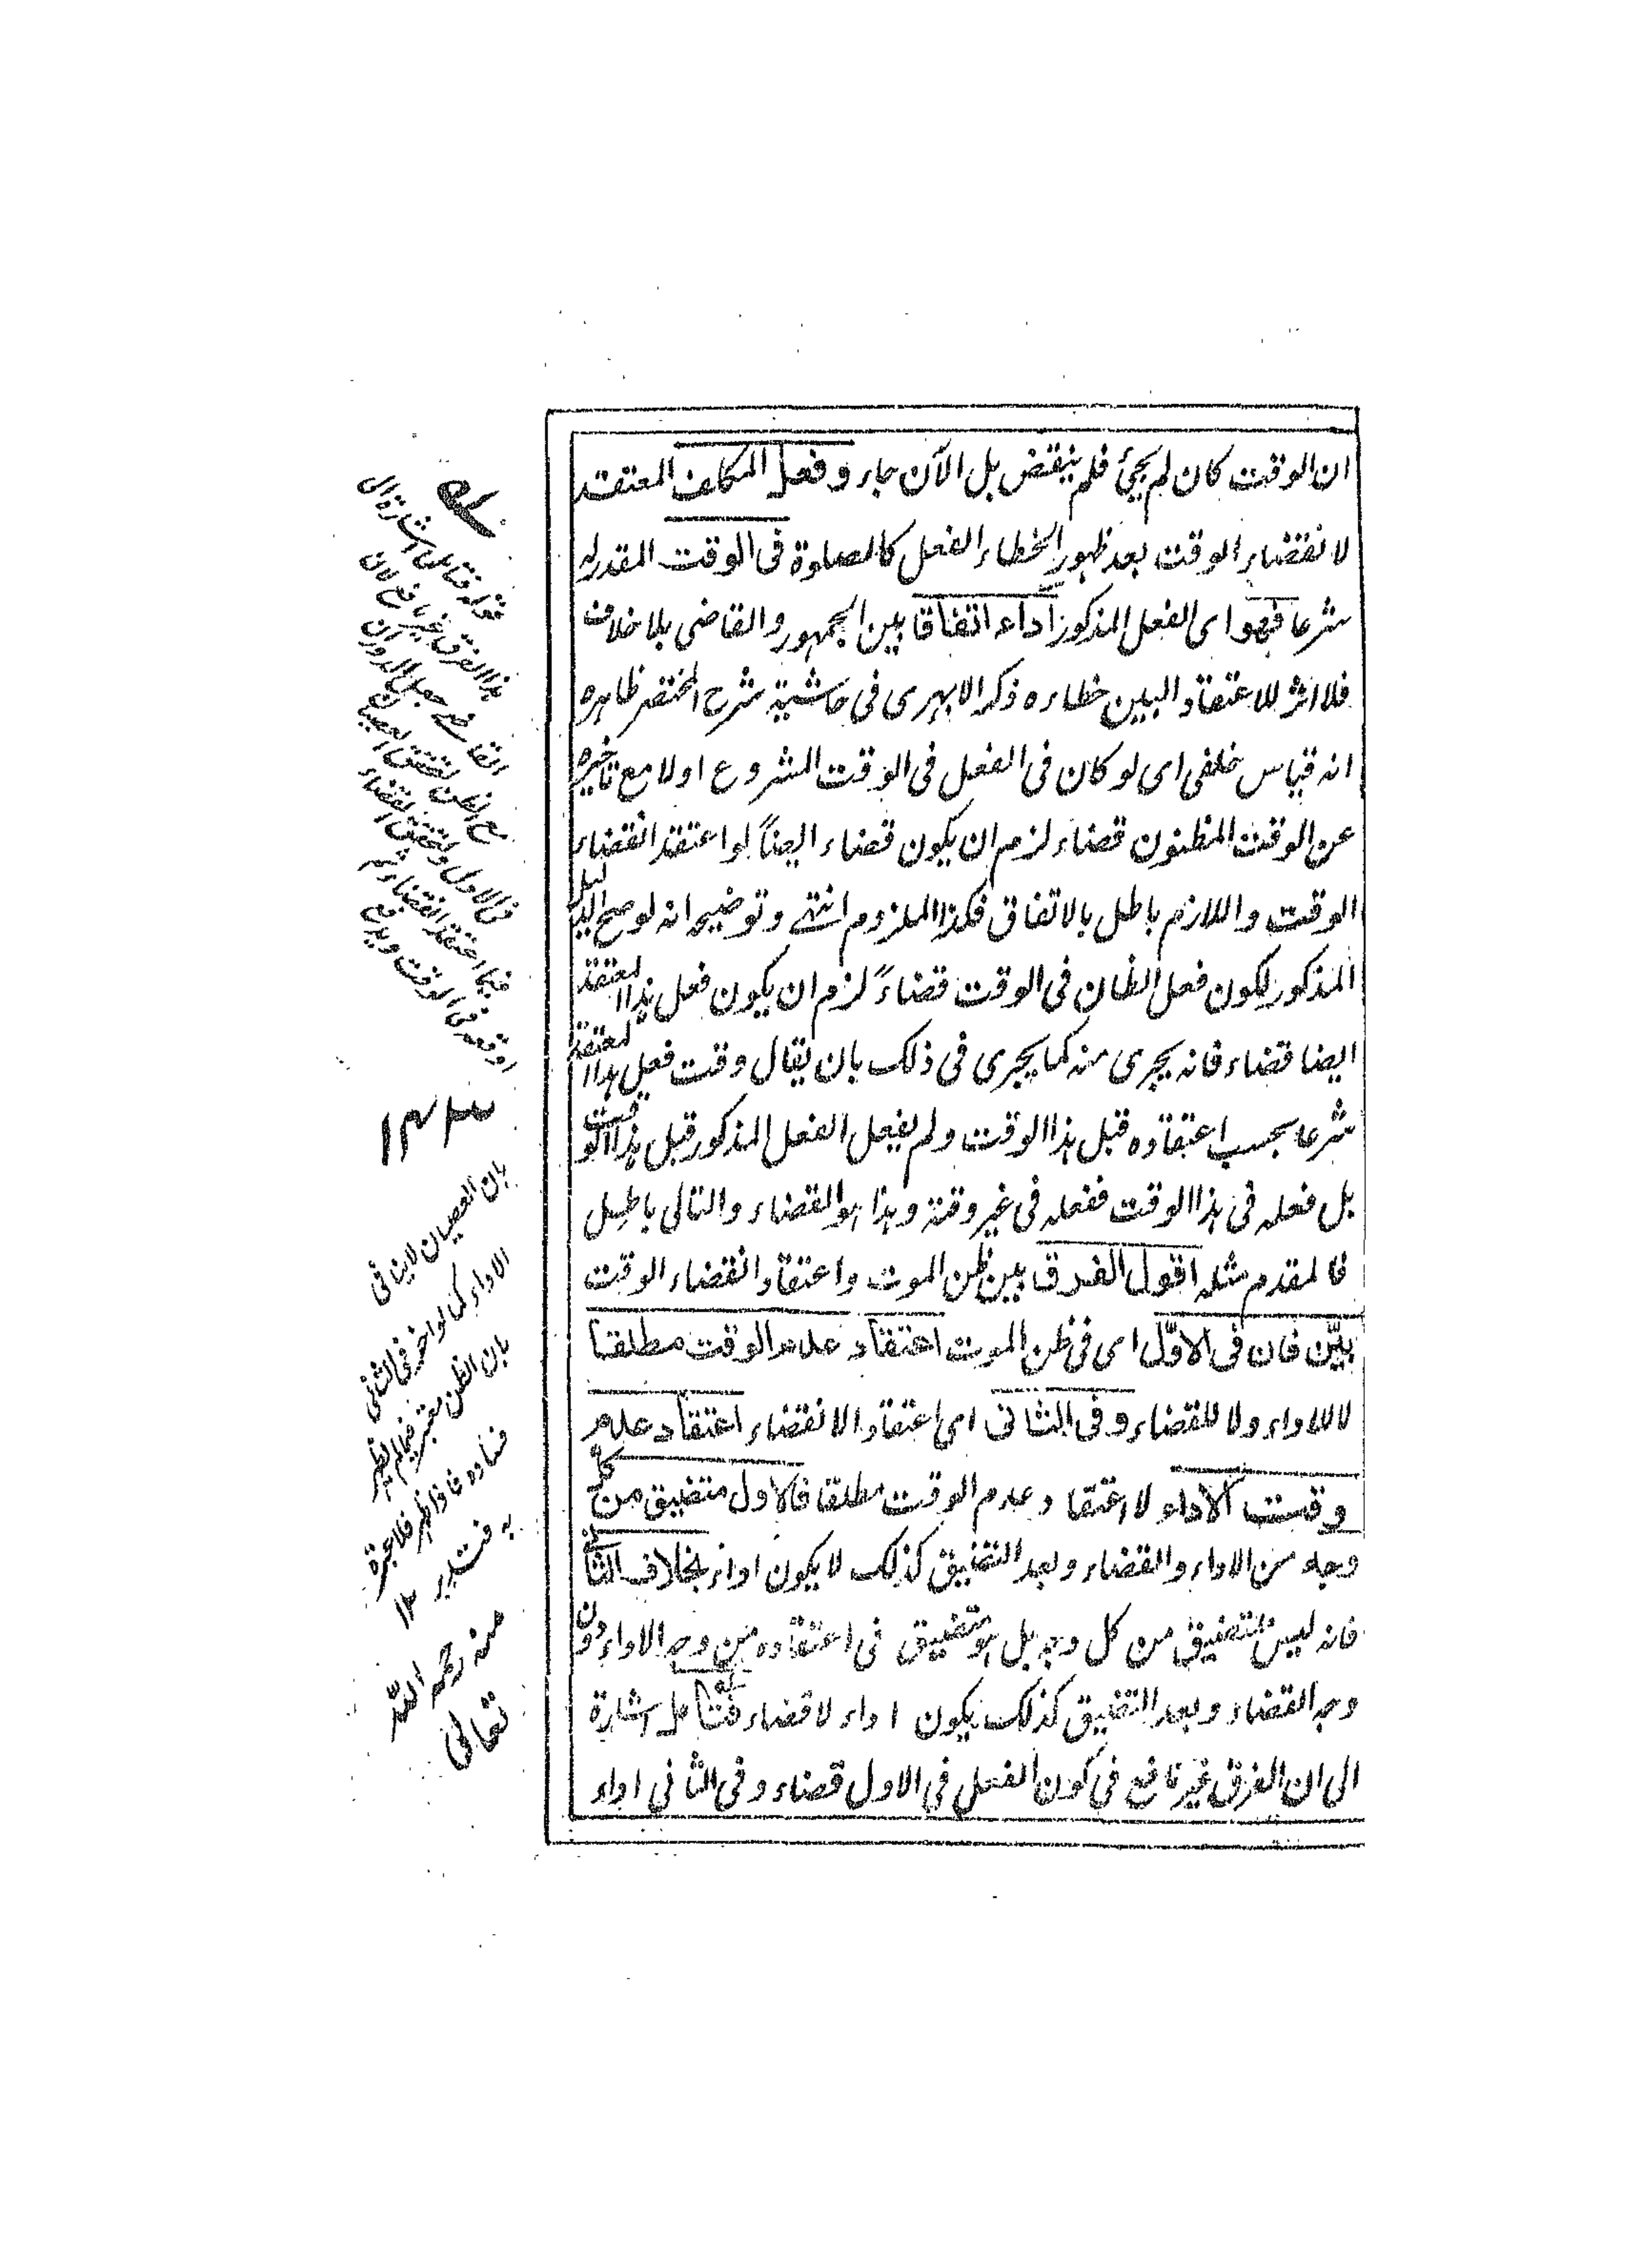 ان الوقت كان لم يجئ فلم ينقض بل الآن جاء وفعل المكلف المعتقد
لانقضاء الوقت بعد ظهور الخطاء الفعل كالصلوة فى الوقت المقدر له
شرعا فهو اى الفعل المذكور اداء اتفاقا بين الجمهور والقاضى بلا خلاف
فلا اثر للاعتقاد البين خطاءه ذكر الابهرى فى حاشية شرح المختصر ظاهره
انه قياس خلفى اى لو كان فى الفعل فى الوقت المشروع اولا مع تاخيره
عن الوقت المظنون قضاء لزم ان يكون قضاء ايضاً لو اعتقد انقضاء
الوقت واللازم باطل بالاتفاق فكذا الملزوم انتهى وتوضيحه انه لو صح الدليل
المذكور لكون فعل الظان فى الوقت قضاءً لزم ان يكون فعل هذا المعتقد
ايضا قضاء فانه يجرى منه كما يجرى فى ذلك بان يقال وقت فعل هذا المعتقد
شرعا بحسب اعتقاده قبل هذا الوقت ولم يفعل الفعل المذكور قبل هذا الوقت
بل فعله فى هذا الوقت ففعله فى غير وقتة وهذا هو القضاء والتالى باطل
فالمقدم مثله اقول الفرق بين ظن الموت واعتقاد انقضاء الوقت
بيّن فان فى الاوّل اى فى ظن الموت اعتقاد عدم الوقت مطلقا
لا للاداء ولا للقضاء وفى الثانى اى اعتقاد الانقضاء اعتقاد عدم
وقت الاداء لا اعتقاد عدم الوقت مطلقا فالاول متضيق من كل
وجه من الاداء والقضاء وبعد التضيق كذلك لا يكون اداء بخلاف الثانى
فانه ليس بمتضيق من كل وجه بل هو متضيق فى اعتقاده من وجه الاداء دون
وجه القضاء وبعد التضيق كذلك يكون اداء لا قضاء فتامل اشارة
الى ان الفرق غير نافع فى كون الفعل فى الاول قضاء وفى الثانى اداء
قوله فتامل اشارة الى
هذا الفرق غير نافع لان
القاضى جعل الدوران
مع الظن لتحقق العصيان
فى الاول وتحقق القضاء
فيما اعتقد انقضاءه ثم
اوقعه فى الوقت ويدفع
بان العصيان لا ينافى
الاداء كما لو اخر فى الثانى
بان الظن معتبر فيما لم يظهر
فساده فاذا ظهر فلا عبرة
به فتدبر ١٢
منه رحمه الله
تعالى